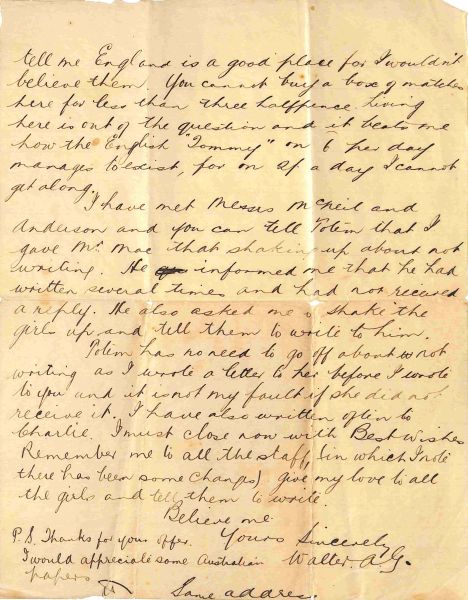 tell me England is a good place for I wouldn't
believe them. You cannot buy a box of matches
here for less than three halfpence. Living
here is out of the question and it beats me
how the English "Tommy" on 6 per day
manages to exist, for on 2/ a day I cannot
get along.
I have met Messrs McNeil and
Anderson and you can tell Totem that I
gave Mr. Mac that shaking up about not
writing. He informed me that he had
written several times and had not received
a reply. He also asked me to shake the
girls up and tell them to write to him.
Totem has no need to go off about not
writing as I wrote a letter to her before I wrote
to you and it is not my fault if she did not
receive it. I have also written often to
Charlie. I must close now with Best Wishes
Remember me to all the staff (in which I note
there has been some changes) give my love to all
the girls and tell them to write.
Believe me
Yours Sincerely
Walter. A.G.
P.S. Thanks for your offer.
I would appreciate some Australian
papers
Same addres.